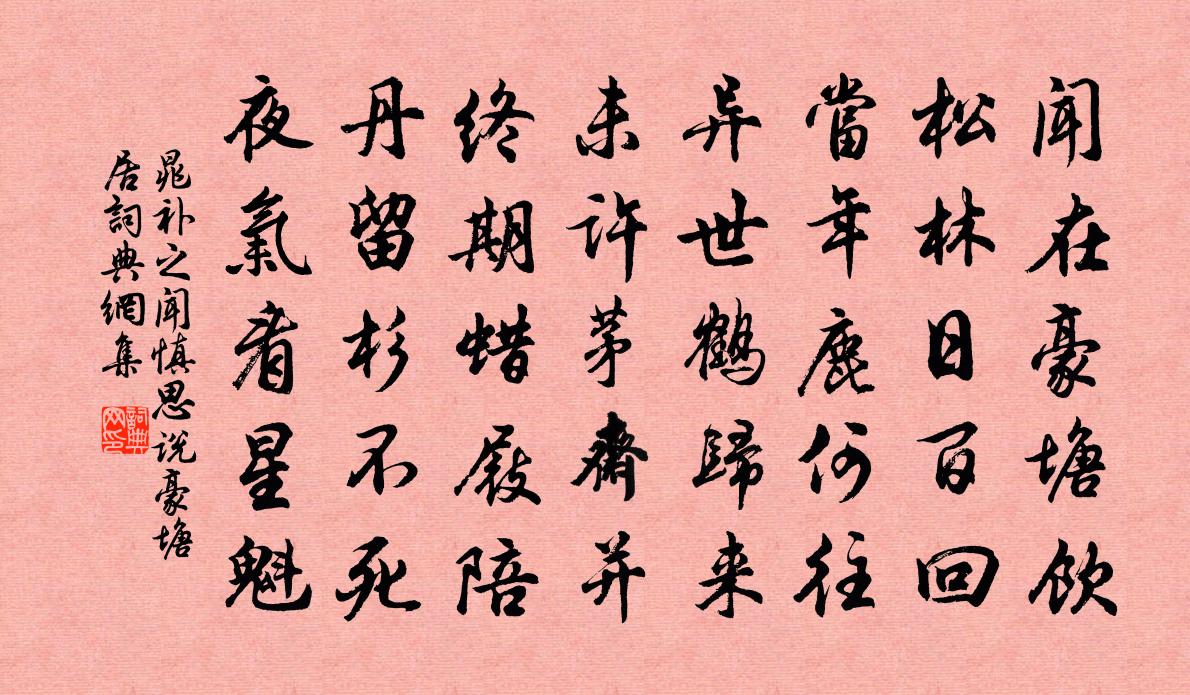 闻在豪塘饮
松林日百回
當年鹿何往
异世鶴歸来
未许茅齋并
终期蜡屐陪
丹留杉不死
夜氣看星魁
晁补之闻慎思说豪塘
居詞典網集
詞典网印